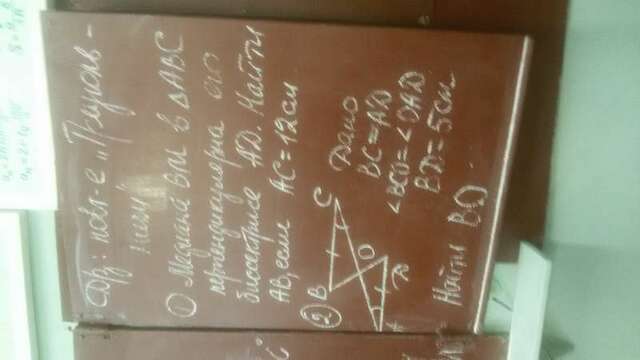 Д/з: повт-е „Треуголь-
ники"
① Медиана BM в △ABC
перпендикулярна его
биссектрисе AD. Найти
AB, если AC = 12 см
②
B
C
O
A
D
Дано
BC = AD
∠BCO = ∠OAD
BD = 5 см
Найти BO